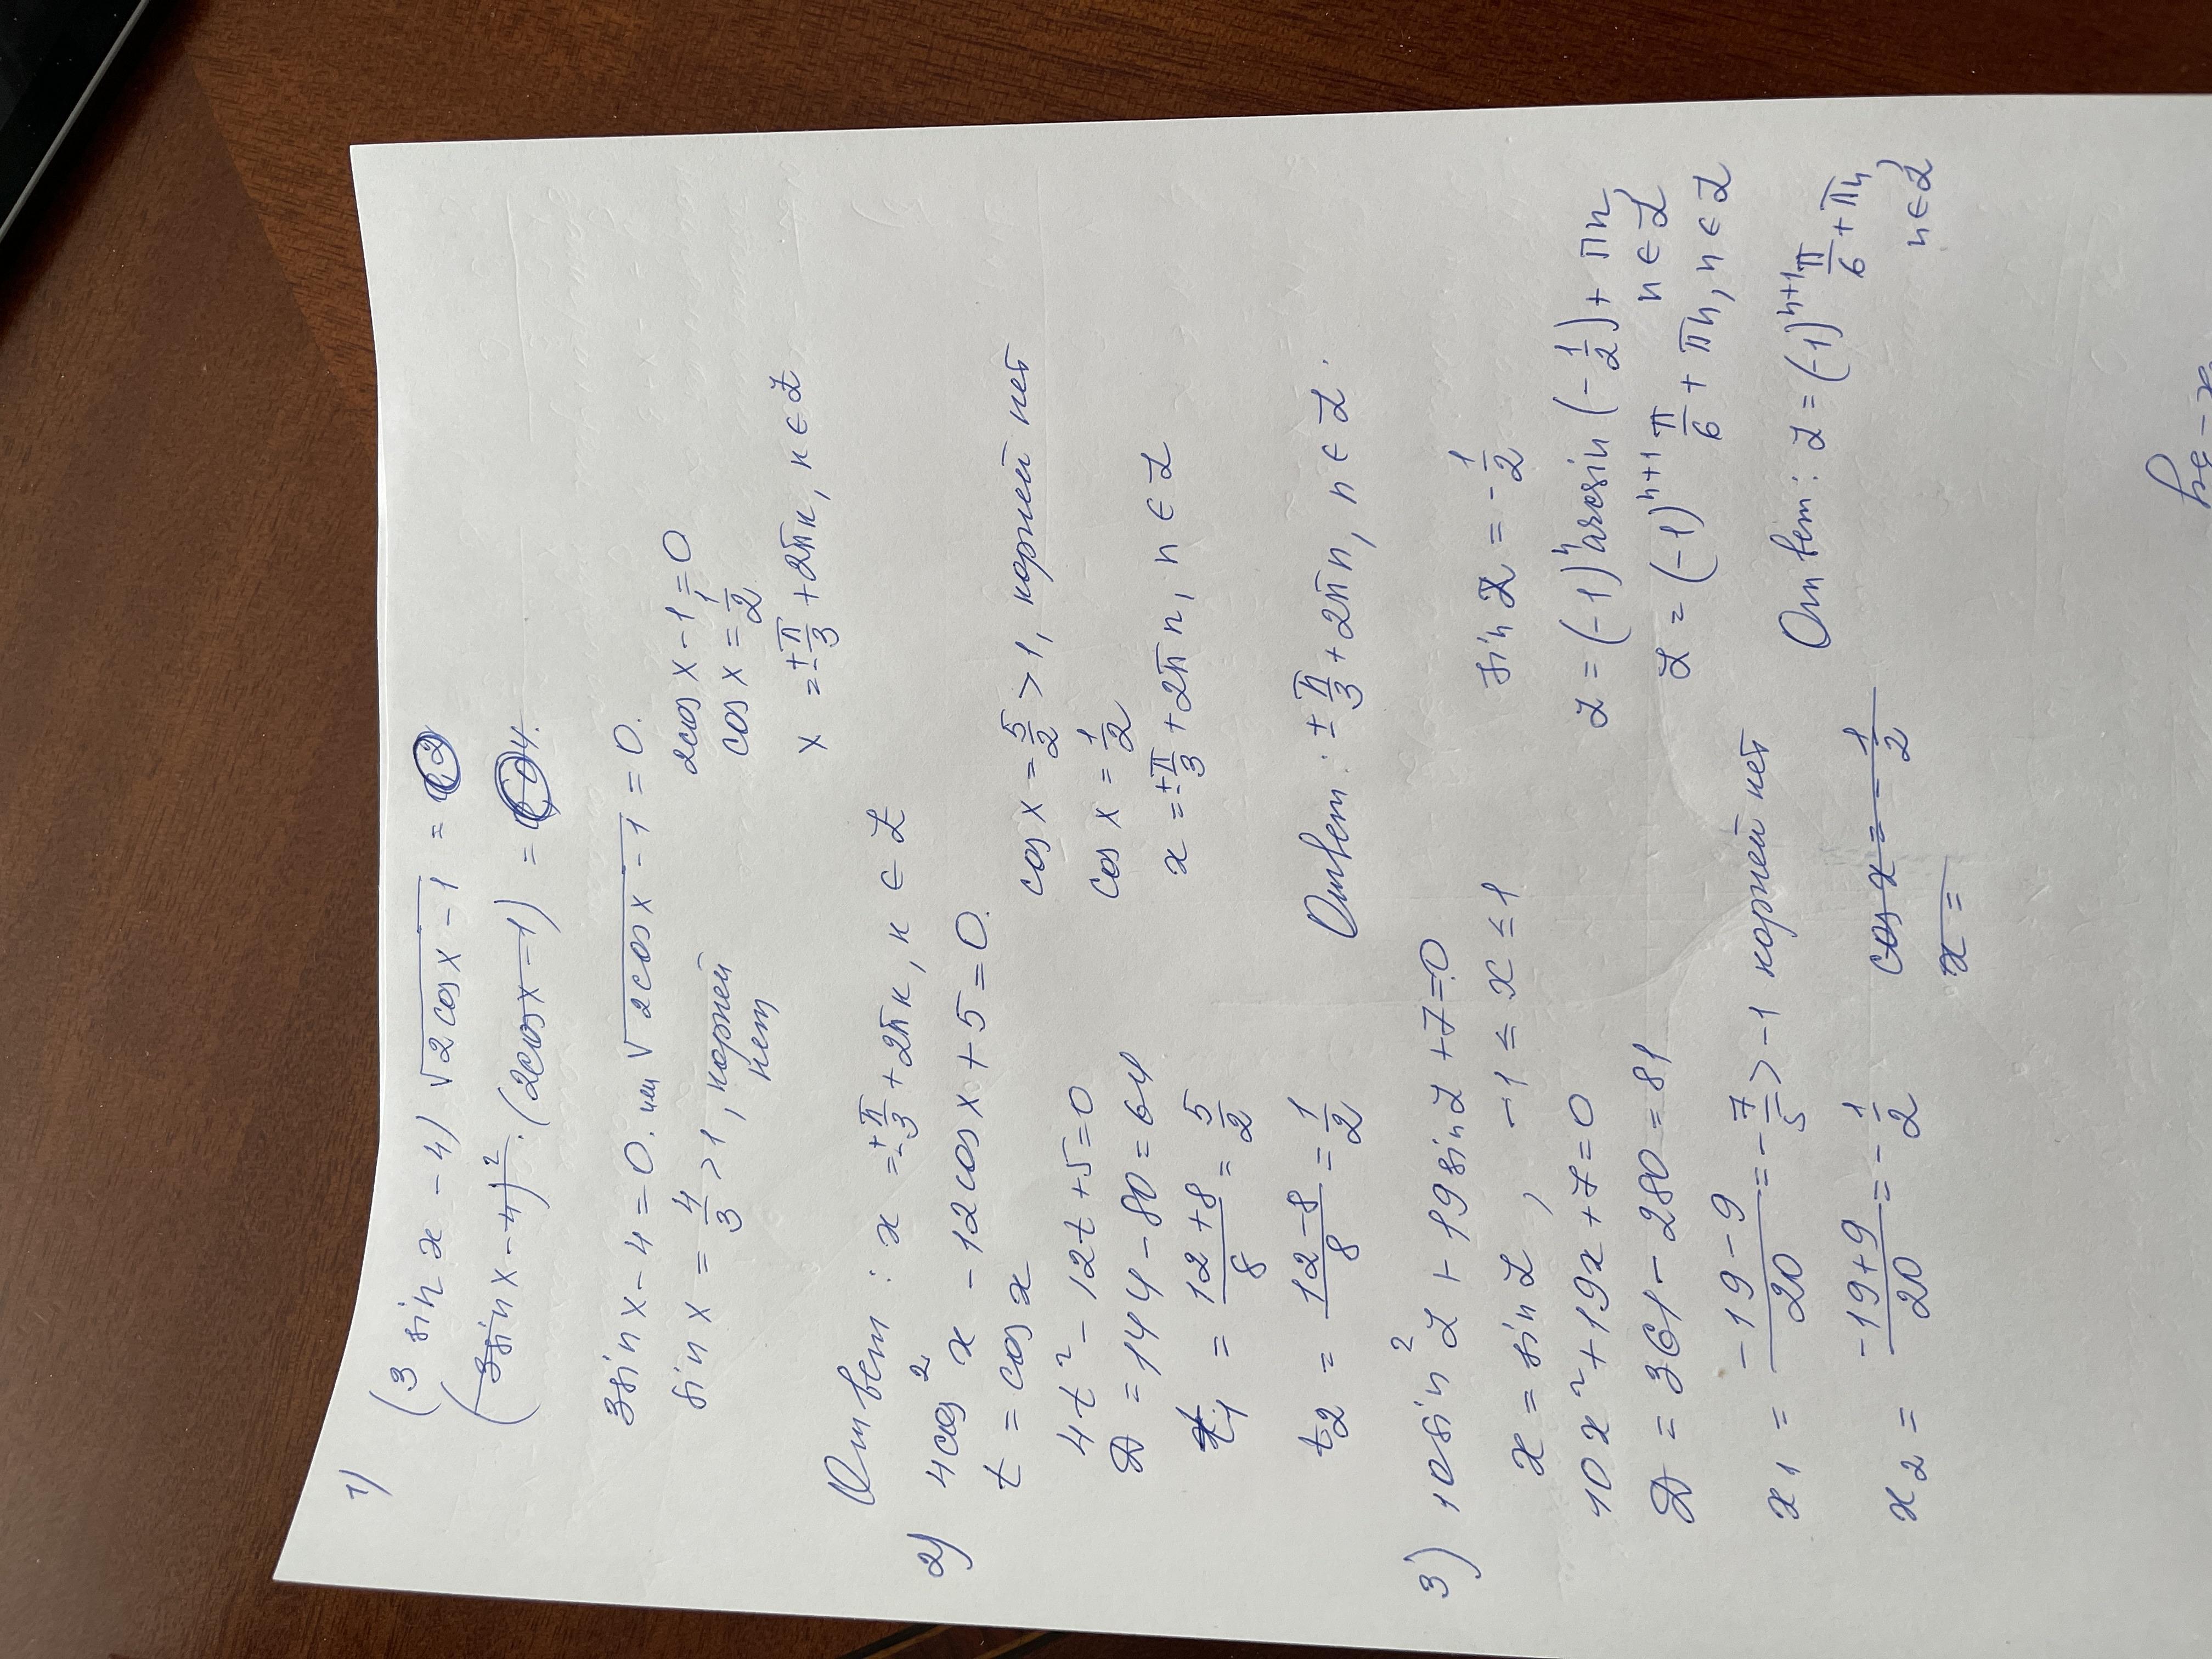 1) (3 sin x - 4) √(2cos x - 1) =
(3sin x - 4)² · (2cos x - 1) = 4.
3sin x - 4 = 0. или √(2cos x - 1) = 0.
sin x = 4/3 > 1, корней нет
2cos x - 1 = 0
cos x = 1/2
x = ± π/3 + 2πк, к ∈ Z
Ответ: x = ± π/3 + 2πк, к ∈ Z
2) 4cos² x - 12cos x + 5 = 0.
t = cos x
4t² - 12t + 5 = 0
D = 144 - 80 = 64
t₁ = (12 + 8)/8 = 5/2
t₂ = (12 - 8)/8 = 1/2
cos x = 5/2 > 1, корней нет
cos x = 1/2
x = ± π/3 + 2πn, n ∈ Z
Ответ: ± π/3 + 2πn, n ∈ Z.
3) 10sin² Z + 19sin Z + 7 = 0
x = sin Z, -1 ≤ x ≤ 1
10x² + 19x + 7 = 0
D = 361 - 280 = 81
x₁ = (-19 - 9)/20 = -7/5 > -1 корней нет
x₂ = (-19 + 9)/20 = -1/2
cos x = -1/2
x =
sin Z = -1/2
Z = (-1)ⁿ arcsin (-1/2) + πn
n ∈ Z
Z = (-1)ⁿ⁺¹ π/6 + πn, n ∈ Z
Ответ: Z = (-1)ⁿ⁺¹ π/6 + πn,
n ∈ Z